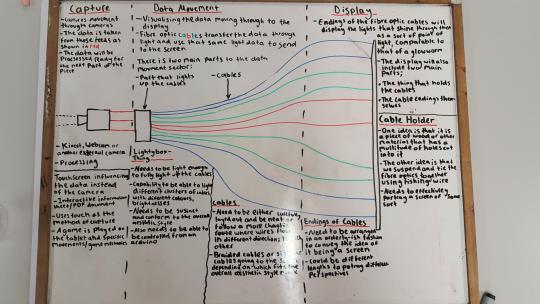 Capture
- Gathers movement
through cameras
- The data is taken
from those feeds as
shown in red
- The data will be
Processed ready for
the next part of the
Piece
Data Movement
- Visualising the data moving through to the
display
- Fibre optic cables transfer the data through
light and use that same light data to send
to the screen
There is two main parts to the data
movement sector:
- Part that lights
up the cables
- Cables
Display
- Endings of the fibre optic cables will
display the lights that shine through them
as a sort of point of
light, comparable to
that of a glowworm
- The display will also
include two main
parts;
- The thing that holds
the cables
- The cable endings them
selves
Cable Holder
- One idea is that it is
a piece of wood or other
material that has a
multitude of holes cut
into it
- The other idea is that
we suspend and tie the
fibre optics together
using fishing wire
- Needs to effectively
portray a screen of some
sort
- Kinect, Webcam or
another external camera
- Processing
Touchscreen influencing
the data instead
of the camera
- Interactive information
sheet/PDF document
- Uses touch as the
method of capture
- A game is played on
the tablet and specific
movements/game mechanics
Lightybox-
Thing
- Needs to be light enough
to fully light up the cables
- Capability to be able to light
different clusters of cables
with different colours,
brightnesses
- Needs to be
and conform to the overall
aesthetic
- Also needs to be able to
be controlled from an
arduino
Cables
- Need to be either carefully
layed out and be neat or
follow a more chaotic
route where wires flow
in different directions to each
other
- Braided cables or single
cables going to the
depending on which fits the
overall aesthetic style more
Endings of Cables
- Need to be arranged
in an orderly-ish fashion
to convey the idea of
it being a screen
- Could be different
lengths to portray different
perspectives